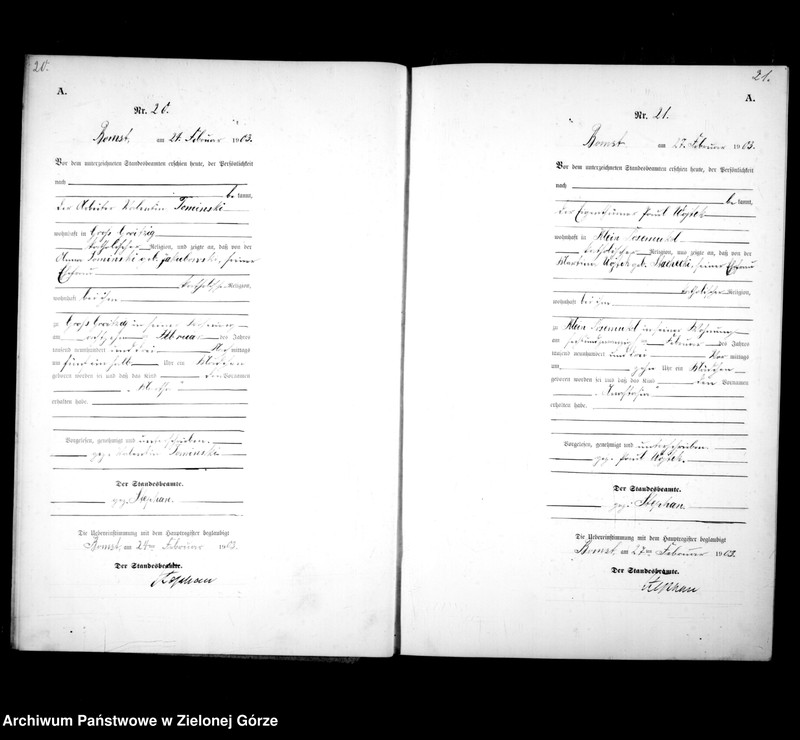 20.
A.
Nr. 20.
Bomst, am 24. Februar 1903.
Vor dem unterzeichneten Standesbeamten erschien heute, der Persönlichkeit
nach
be kannt,
der Arbeiter Valentin Teminski
wohnhaft in Groß
katholischer Religion, und zeigte an, daß von der
Anna Teminski geb. Jakubowski, seiner
Ehefrau
katholischer Religion,
wohnhaft bei ihm
zu Groß in seiner Wohnung
am Februar des Jahres
tausend neunhundert und drei Vor mittags
um fünf ein halb Uhr ein Mädchen
geboren worden sei und daß das Kind den Vornamen
erhalten habe.
Vorgelesen, genehmigt und unterschrieben.
gez. Valentin Teminski
Der Standesbeamte.
gez. Stephan.
Die Uebereinstimmung mit dem Hauptregister beglaubigt
Bomst, am 24ten Februar 1903.
Der Standesbeamte.
Stephan
21.
A.
Nr. 21.
Bomst am 27. Februar 1903.
Vor dem unterzeichneten Standesbeamten erschien heute, der Persönlichkeit
nach
be kannt,
der Eigenthümer Paul Wojtek
wohnhaft in Klein Posemukel
katholischer Religion, und zeigte an, daß von der
Martina Wojtek geb. seiner Ehefrau
katholischer Religion,
wohnhaft bei ihm
zu Klein Posemukel in seiner Wohnung
am Februar des Jahres
tausend neunhundert und drei Vor mittags
um zehn Uhr ein Mädchen
geboren worden sei und daß das Kind den Vornamen
„Anastasia"
erhalten habe.
Vorgelesen, genehmigt und unterschrieben.
gez. Paul Wojtek.
Der Standesbeamte.
gez. Stephan.
Die Uebereinstimmung mit dem Hauptregister beglaubigt
Bomst, am 27ten Februar 1903.
Der Standesbeamte.
Stephan
Archiwum Państwowe w Zielonej Górze